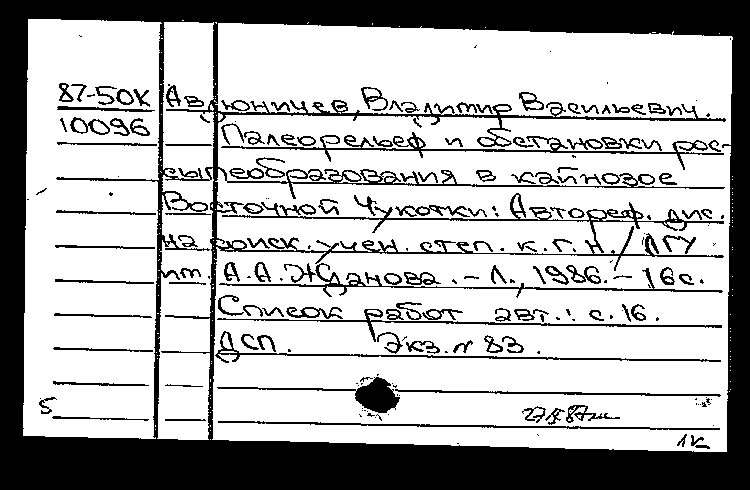 87-50К Авдюничев, Владимир Васильевич.
10096 Палеорельеф и обстановки рос-
сыпеобразования в кайнозое
Восточной Чукотки: Автореф. дис.
на соиск. учен. степ. к.г.н. / ЛГУ
им. А.А. Жданова. - Л., 1986. - 16 с.
Список работ авт.: с. 16.
ДСП. Экз. № 83.
5
1к